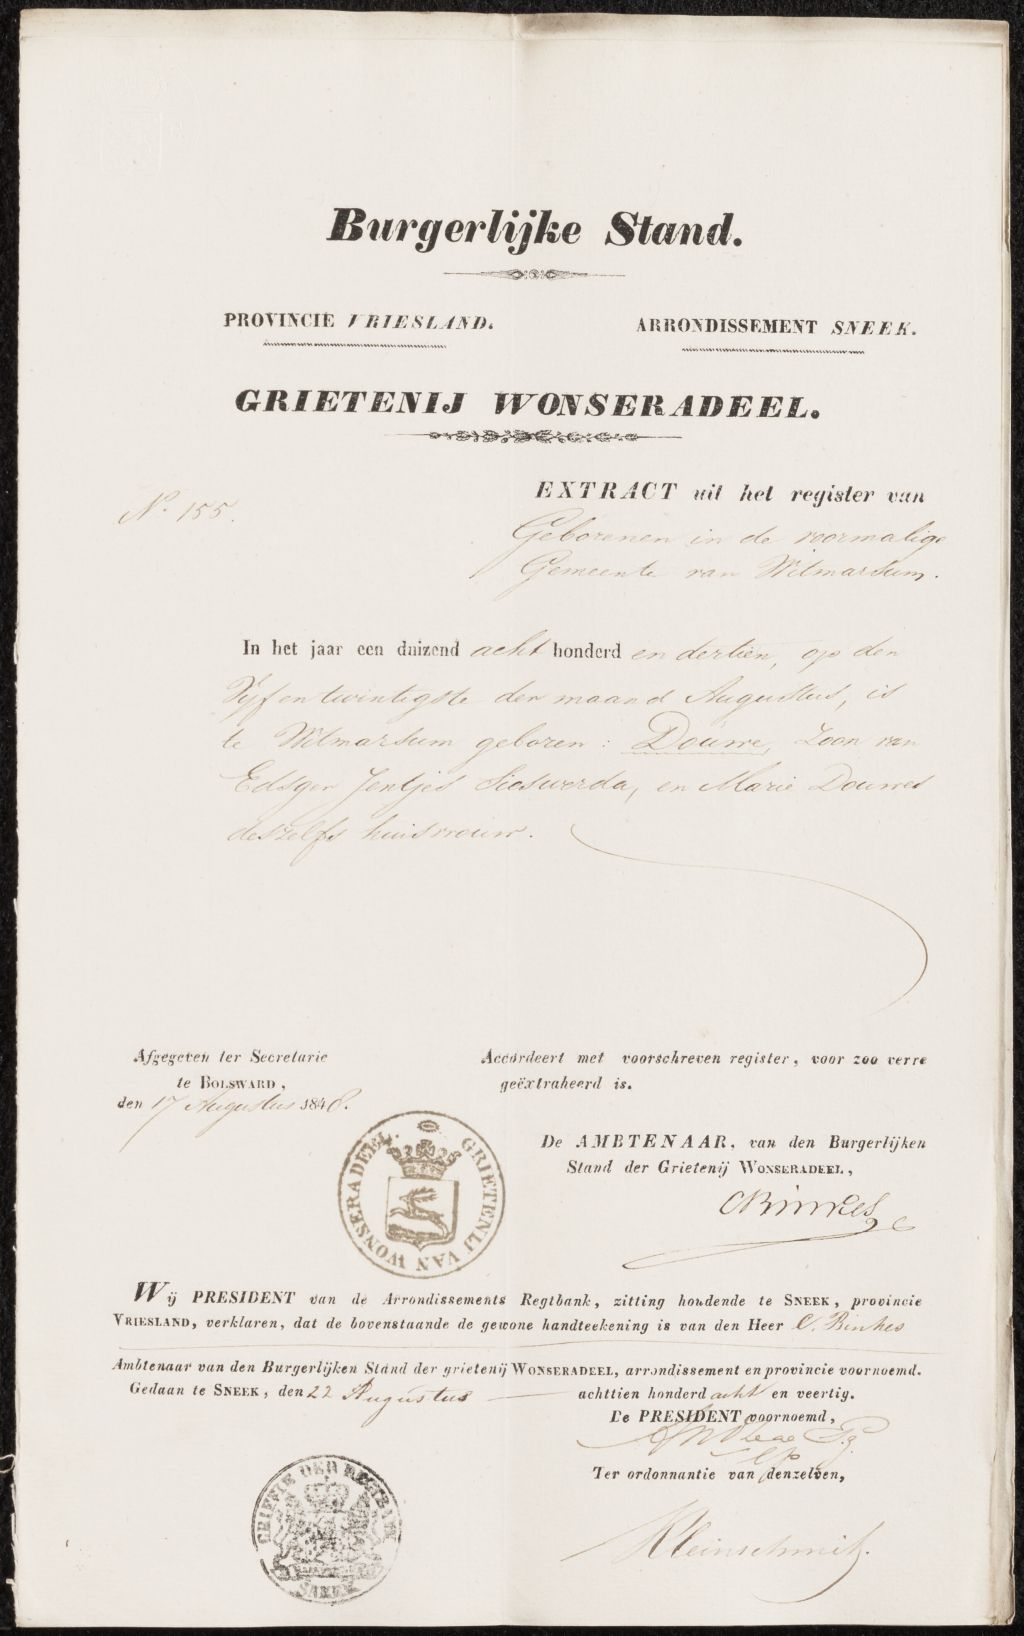 Burgerlijke Stand.
PROVINCIE VRIESLAND. ARRONDISSEMENT SNEEK.
GRIETENIJ WONSERADEEL.
N. 155.
EXTRACT uit het register van
Geborenen in de voormalige
Gemeente van Witmarsum.
In het jaar een duizend acht honderd en dertien, op den
Vijf en twintigste der maand Augustus, is
te Witmarsum geboren: Douwe, Zoon van
Edsger Jentjes Sieswerda, en Marie Douwes
deszelfs huisvrouw.
Afgegeven ter Secretarie
te BOLSWARD,
den 17 Augustus 1848.
Accordeert met voorschreven register, voor zoo verre
geëxtraheerd is.
De AMBTENAAR, van den Burgerlijken
Stand der Grietenij WONSERADEEL,
CBinkes
GRIETENIJ VAN WONSERADEEL.
Wij PRESIDENT van de Arrondissements Regtbank, zitting houdende te SNEEK, provincie
VRIESLAND, verklaren, dat de bovenstaande de gewone handteekening is van den Heer C. Binkes
Ambtenaar van den Burgerlijken Stand der grietenij WONSERADEEL, arrondissement en provincie voornoemd.
Gedaan te SNEEK, den 22 Augustus achttien honderd acht en veertig.
De PRESIDENT voornoemd,
Ter ordonnantie van denzelven,
Kleinschmit.
GRIFFIE DER REGTBANK
SNEEK